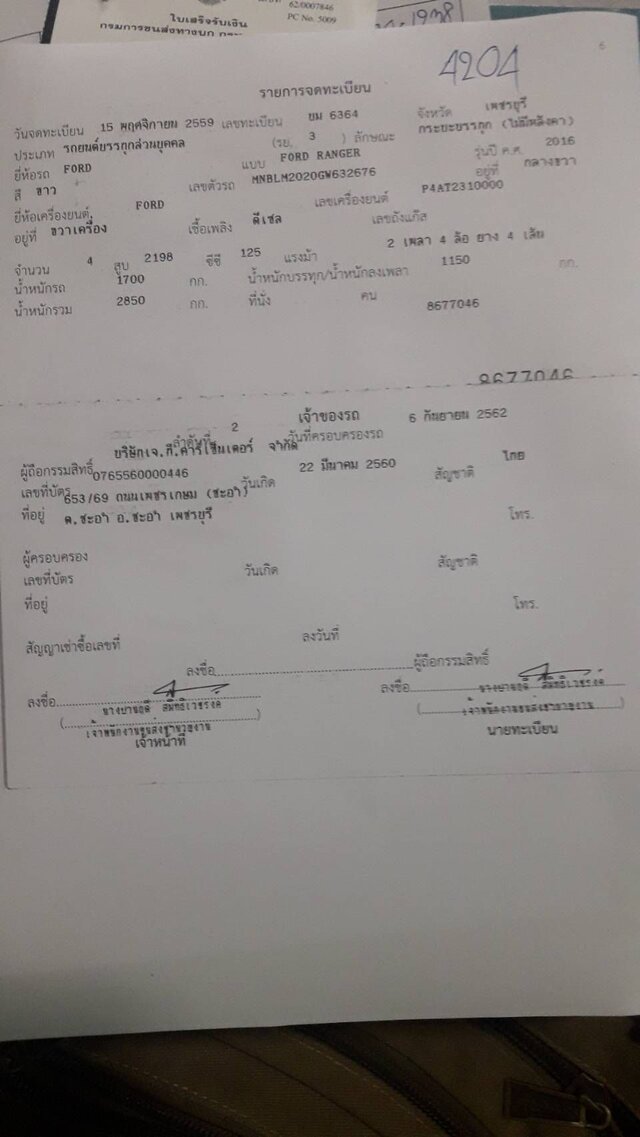 62/0007846
PC No. 5009
ใบเสร็จรับเงิน
กรมการขนส่งทางบก
4204
6
รายการจดทะเบียน
วันจดทะเบียน 15 พฤศจิกายน 2559 เลขทะเบียน ยม 6364 จังหวัด เพชรบุรี
ประเภท รถยนต์บรรทุกส่วนบุคคล (รย. 3 ) ลักษณะ กระบะบรรทุก (ไม่มีหลังคา)
ยี่ห้อรถ FORD แบบ FORD RANGER รุ่นปี ค.ศ. 2016
สี ขาว เลขตัวรถ MNBLM2020GW632676 อยู่ที่ กลางขวา
ยี่ห้อเครื่องยนต์ FORD เลขเครื่องยนต์ P4AT2310000
อยู่ที่ ขวาเครื่อง เชื้อเพลิง ดีเซล เลขถังแก๊ส
จำนวน 4 สูบ 2198 ซีซี 125 แรงม้า 2 เพลา 4 ล้อ ยาง 4 เส้น
น้ำหนักรถ 1700 กก. น้ำหนักบรรทุก/น้ำหนักลงเพลา 1150 กก.
น้ำหนักรวม 2850 กก. ที่นั่ง คน
8677046
8677046
เจ้าของรถ
ลำดับที่ 2 วันที่ครอบครองรถ 6 กันยายน 2562
ผู้ถือกรรมสิทธิ์ บริษัทเจ.ที.คาร์เซ็นเตอร์ จำกัด
เลขที่บัตร 0765560000446 วันเกิด 22 มีนาคม 2560 สัญชาติ ไทย
ที่อยู่ 653/69 ถนนเพชรเกษม (ชะอำ) โทร.
ต.ชะอำ อ.ชะอำ เพชรบุรี
ผู้ครอบครอง
เลขที่บัตร วันเกิด สัญชาติ
ที่อยู่ โทร.
สัญญาเช่าซื้อเลขที่ ลงวันที่
ลงชื่อ ผู้ถือกรรมสิทธิ์
ลงชื่อ ลงชื่อ
เจ้าพนักงานขนส่งชำนาญงาน เจ้าพนักงานขนส่งชำนาญงาน
เจ้าหน้าที่ นายทะเบียน